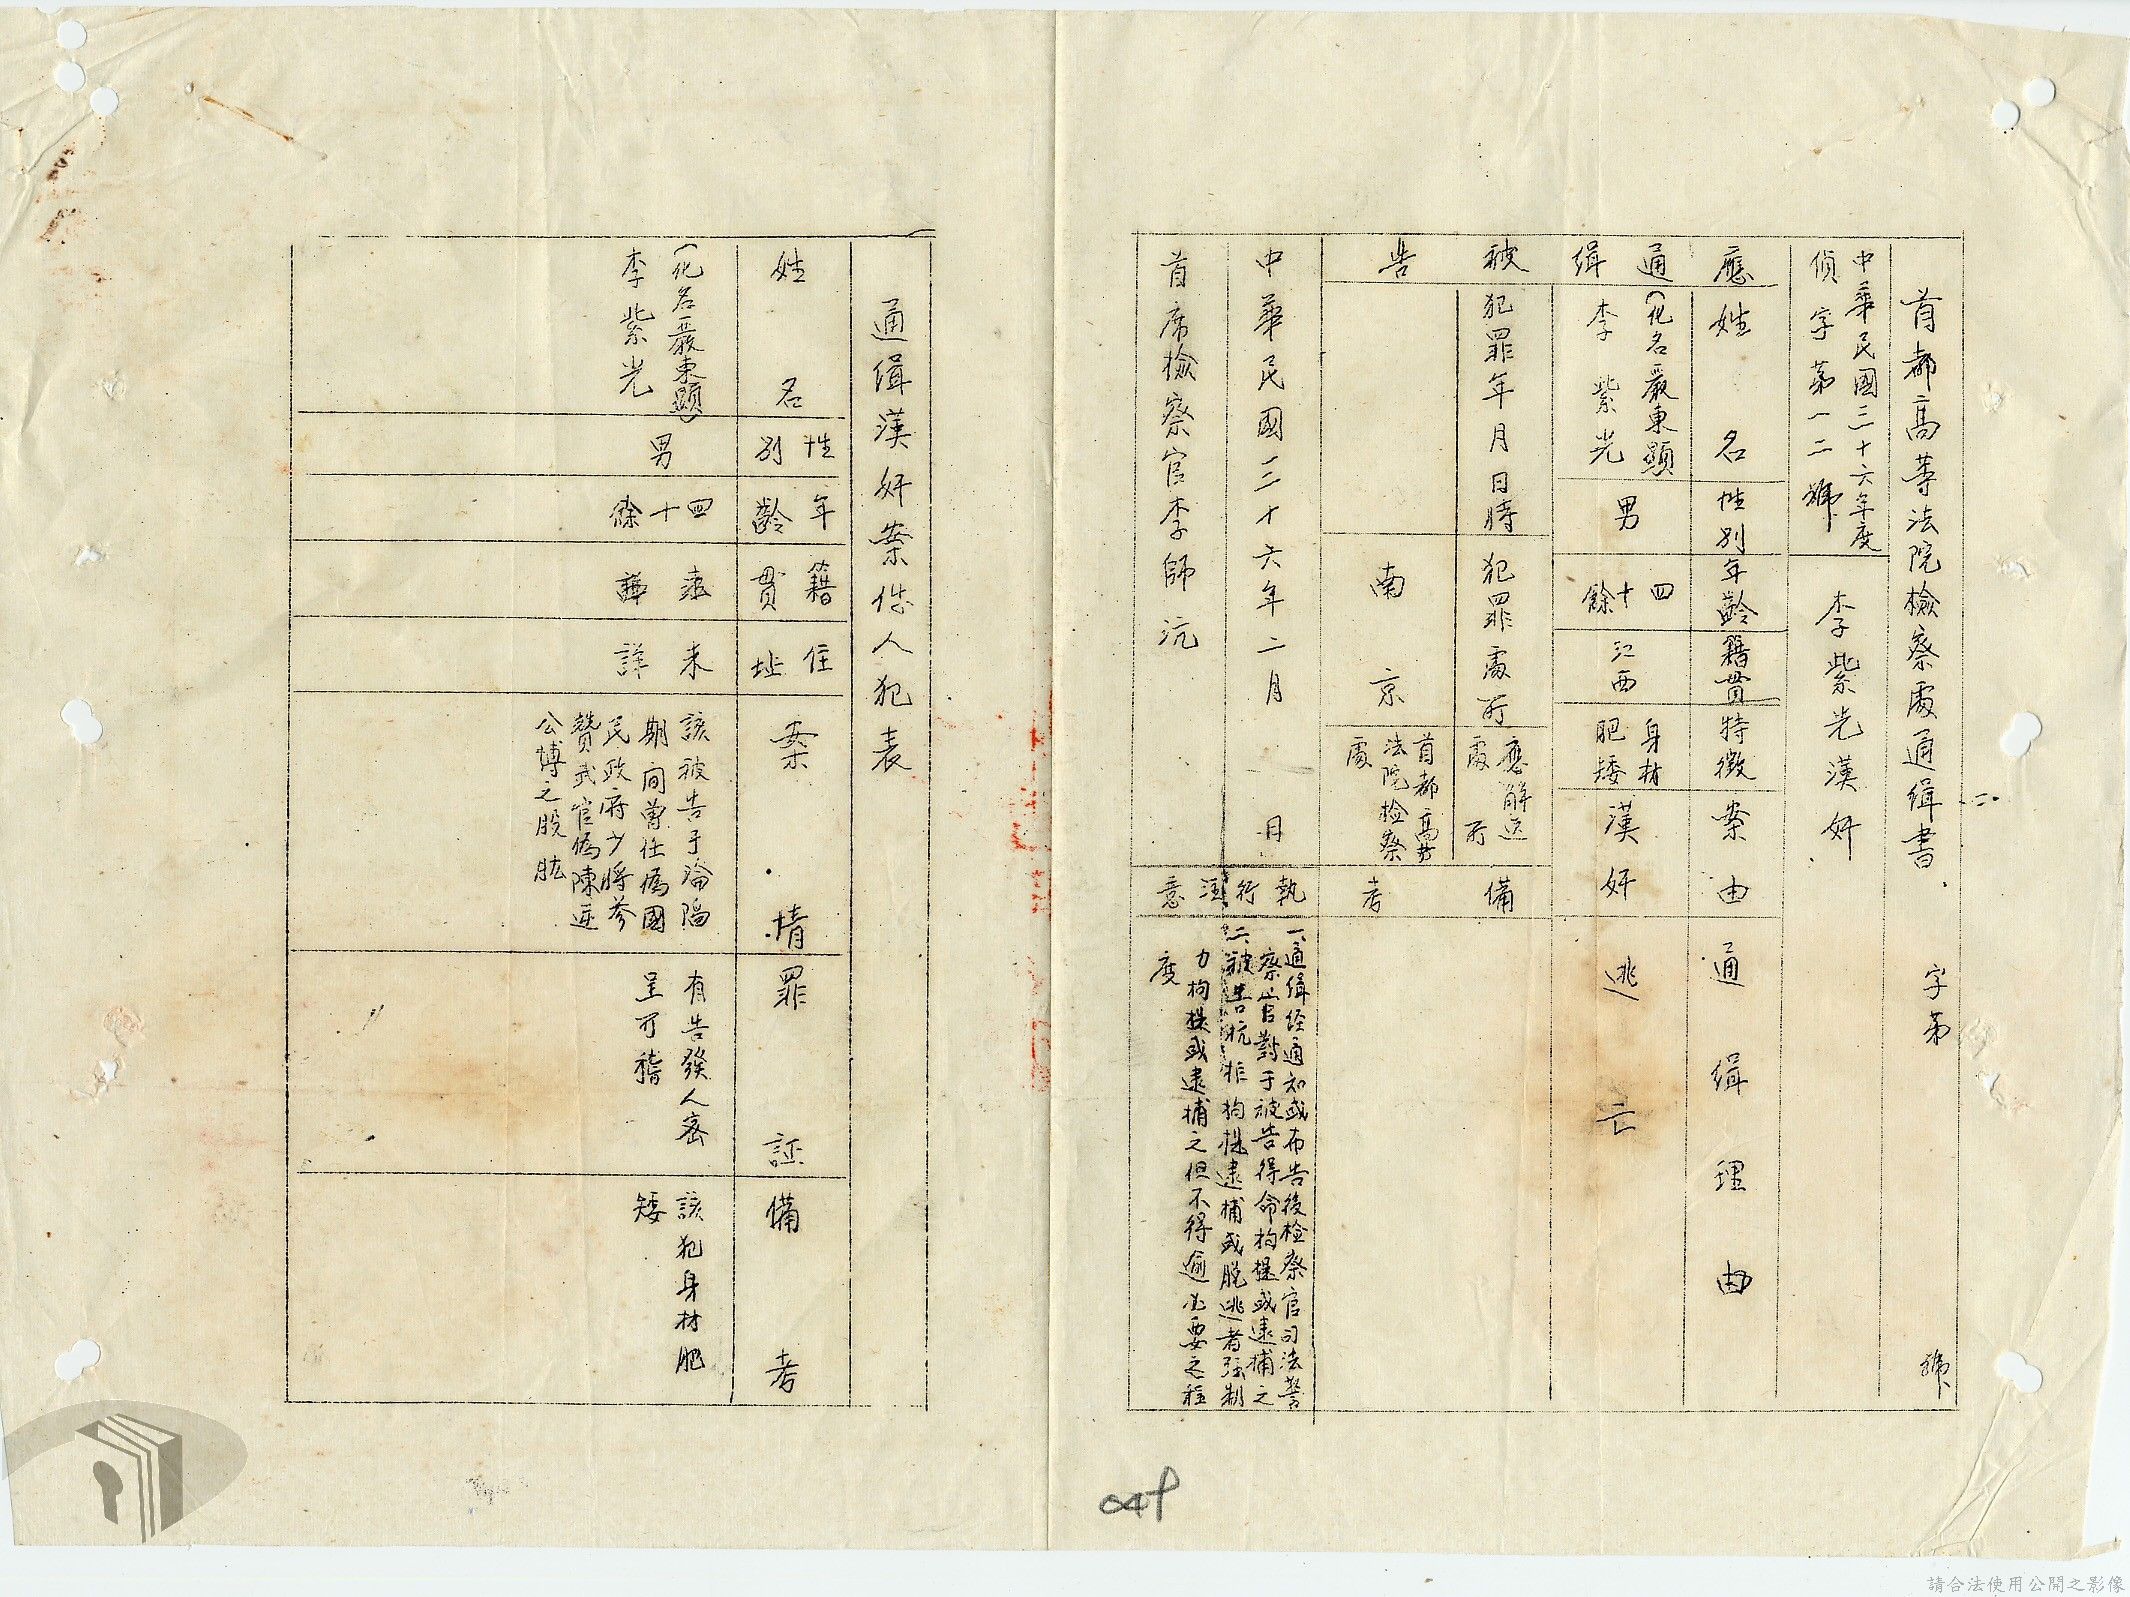 首都高等法院檢察處通緝書 字第 號
中華民國三十六年度
偵字第一二號
李紫光漢奸
應通緝被告
姓名 性別 年齡 籍貫 特徵 案由 通緝理由
(化名嚴東顯)
李紫光
男
四十餘
江西
身材
肥矮
漢奸
逃亡
犯罪年月日時 犯罪處所
應解送
處所
備考
南京
首都高等
法院檢察
處
中華民國三十六年二月 日
首席檢察官李師沆
執行注意
一、通緝經通知或布告後檢察官司法警
察官對于被告得命拘提或逮捕之
二、被告抗拒拘提逮捕或脫逃者強制
力拘提或逮捕之但不得逾必要之程
度
通緝漢奸案件人犯表
姓名 性別 年齡 籍貫 住址 案情 罪証 備考
(化名嚴東顯)
李紫光
男
四十餘
未詳
該被告于淪陷
期間曾任偽國
民政府少將參
贊武官偽陳逆
公博之股肱
有告發人密
呈可稽
該犯身材肥
矮
請合法使用公開之影像